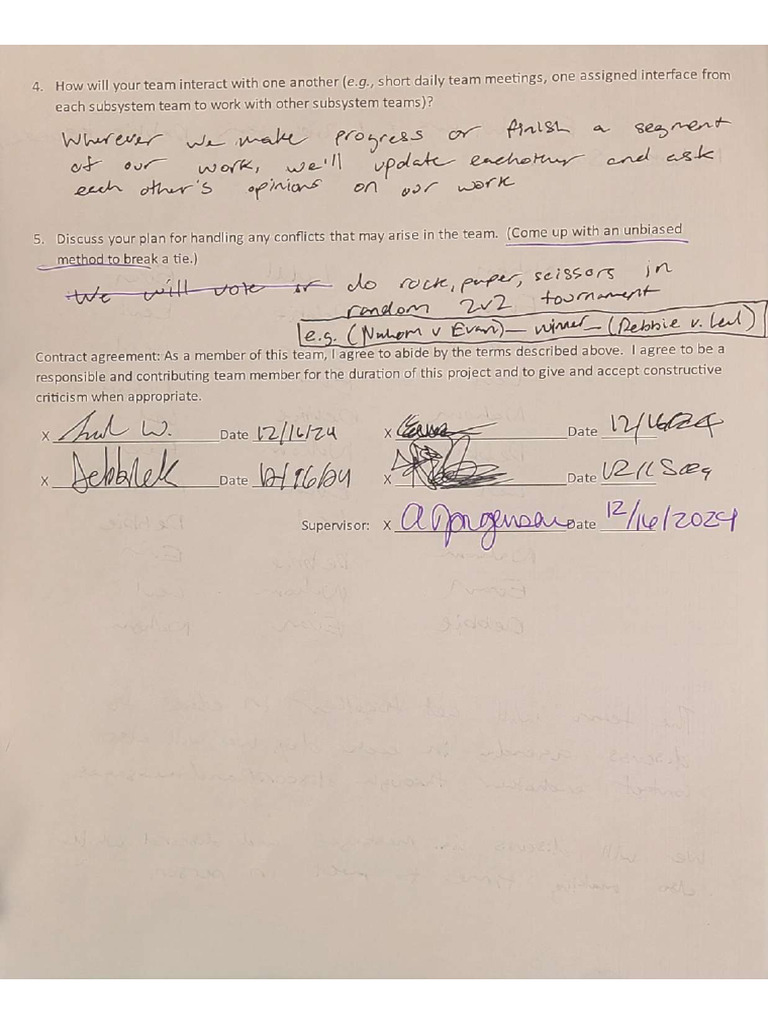 4. How will your team interact with one another (e.g., short daily team meetings, one assigned interface from
each subsystem team to work with other subsystem teams)?
Wherever we make progress or finish a segment
of our work, we'll update eachother and ask
each other's opinions on our work
5. Discuss your plan for handling any conflicts that may arise in the team. (Come up with an unbiased
method to break a tie.)
We will vote or do rock, paper, scissors in
random 2v2 tournament
e.g. (Nahom v Evan) — winner — (Debbie v. Leul)
Contract agreement: As a member of this team, I agree to abide by the terms described above. I agree to be a
responsible and contributing team member for the duration of this project and to give and accept constructive
criticism when appropriate.
X W. Date 12/16/24 X Date 12/16/24
X Date 12/16/24 X Date
Supervisor: X A Jorgensen Date 12/16/2024